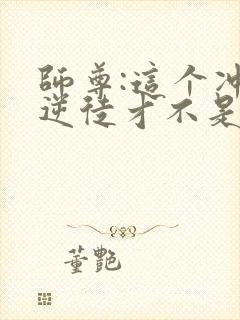 師尊:這个冲
逆徒才不是
董艷